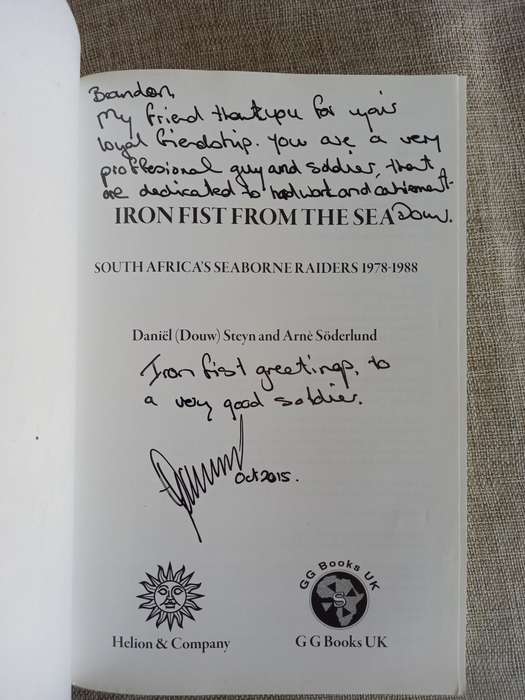 Brandon,
My friend thankyou for your
loyal friendship. You are a very
proffessional guy and soldier, that
are dedicated to hardwork and
Douw.
IRON FIST FROM THE SEA
SOUTH AFRICA'S SEABORNE RAIDERS 1978-1988
Daniël (Douw) Steyn and Arnè Söderlund
Iron fist greetings, to
a very good soldier.
Oct 2015.
GG Books UK
S
Helion & Company
GG Books UK